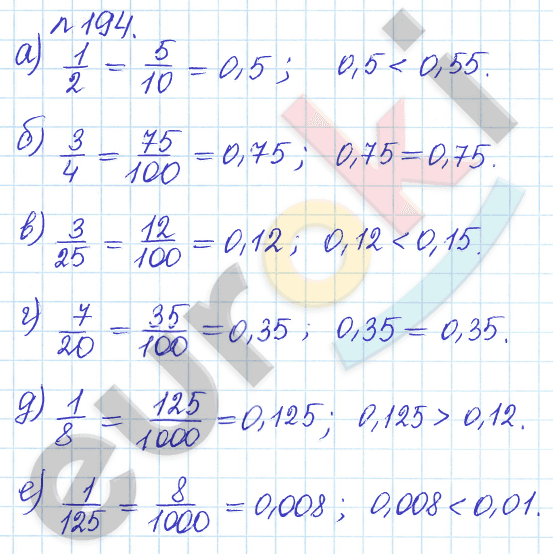 n 194.
а) 1/2 = 5/10 = 0,5 ; 0,5 < 0,55.
б) 3/4 = 75/100 = 0,75 ; 0,75 = 0,75.
в) 3/25 = 12/100 = 0,12 ; 0,12 < 0,15.
г) 7/20 = 35/100 = 0,35 ; 0,35 = 0,35.
д) 1/8 = 125/1000 = 0,125 ; 0,125 > 0,12.
е) 1/125 = 8/1000 = 0,008 ; 0,008 < 0,01.
euroki